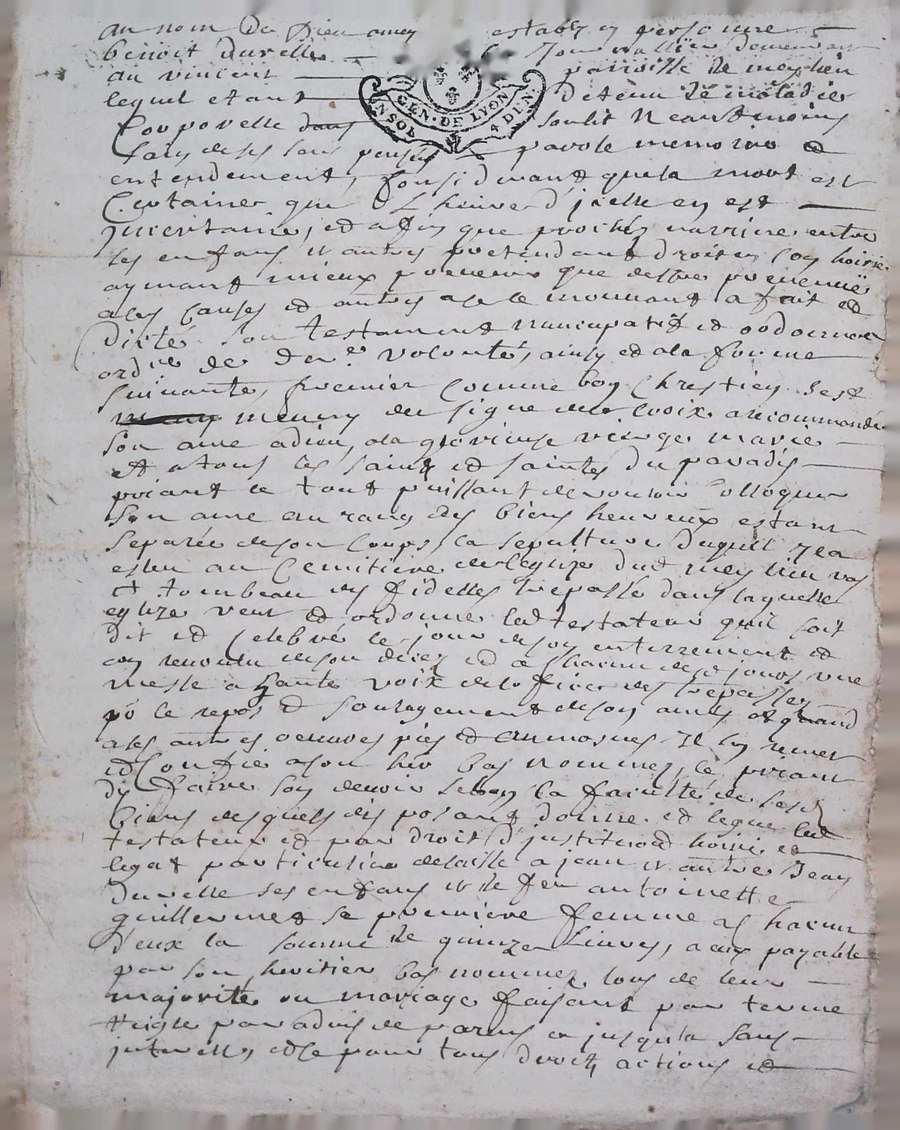 au nom de Dieu amen establ en personne
benoit duvelle Journallier demeurant
au vincent parroisse de meyrieu
lequel etant detenu de maladie
Corporelle dans soulit Neantmoins
Sain de ses sens pensée parole memoire et
entendement, Considerant que la mort est
Certaine que L'heure d'jcelle en est
jncertaine, et afin que procès narrive entre
ses enfans et autres pretendant droit en son hoirie
aymant mieux prevenir que destre prevenue
a ces Causes et autres a le mouvant a fait et
Dicté Son testament nuncupatif et ordonnance
ordre de Dere volonté, ainsy et a la forme
Suivante, premier Comme bon Chrestien sest
muny du signe de la croix a recommandé
Son ame a dieu, a la glorieuse vierge marie
et a tous les saints et saintes du paradis
priant le tout puissant de vouloir Colloquer
Son ame au rang des biens heureux estant
Separée de son Corps, la sepulture duquel
esleu au Cemitiere de leglize dud meyrieu
et tombeau des fidelles trepassé dans laquelle
eglize veut et ordonne led testateur quil soit
dit et Celebré le jour de son enterrement et
au revoulu de son decez et a Chacun de ce jours une
messe a haute voix de loffice des trepassés
pr le repos et Soulagement de son ame, et quand
a les autres oeuvres pies et aumosnes Il sen remet
et Confie a son her bas nommez, le priant
dy faire son devoir selon la faculté de sesd
biens desquels disposant donne et legue led
testateur et par droit d'justitution hoirie et
legat particulier delaisse a jean et autre Jean
Duvelle ses enfans et de feu antoinette
guillermet sa premiere femme a Chacun
d'eux la somme de quinze Livres, a eux payable
par son heritier bas nommez lors de leur
majorité ou mariage faisant par terme
Reigle par advis de parens et jusqu'la sans
jnterest, et ce pour tous droits, actions et
GEN. DE LYON
4 DEN.